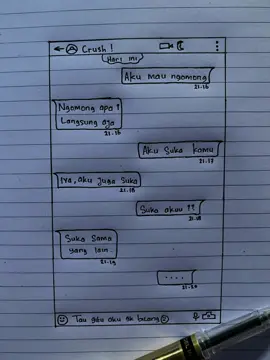 Crush !
Hari ini
Aku mau ngomong
21.16
Ngomong apa ?
Langsung aja
21.16
Aku suka kamu
21.17
Iya, aku juga suka
21.18
Suka akuu ??
21.18
Suka sama
yang lain
21.19
....
21.20
Tau gitu aku gk bilang